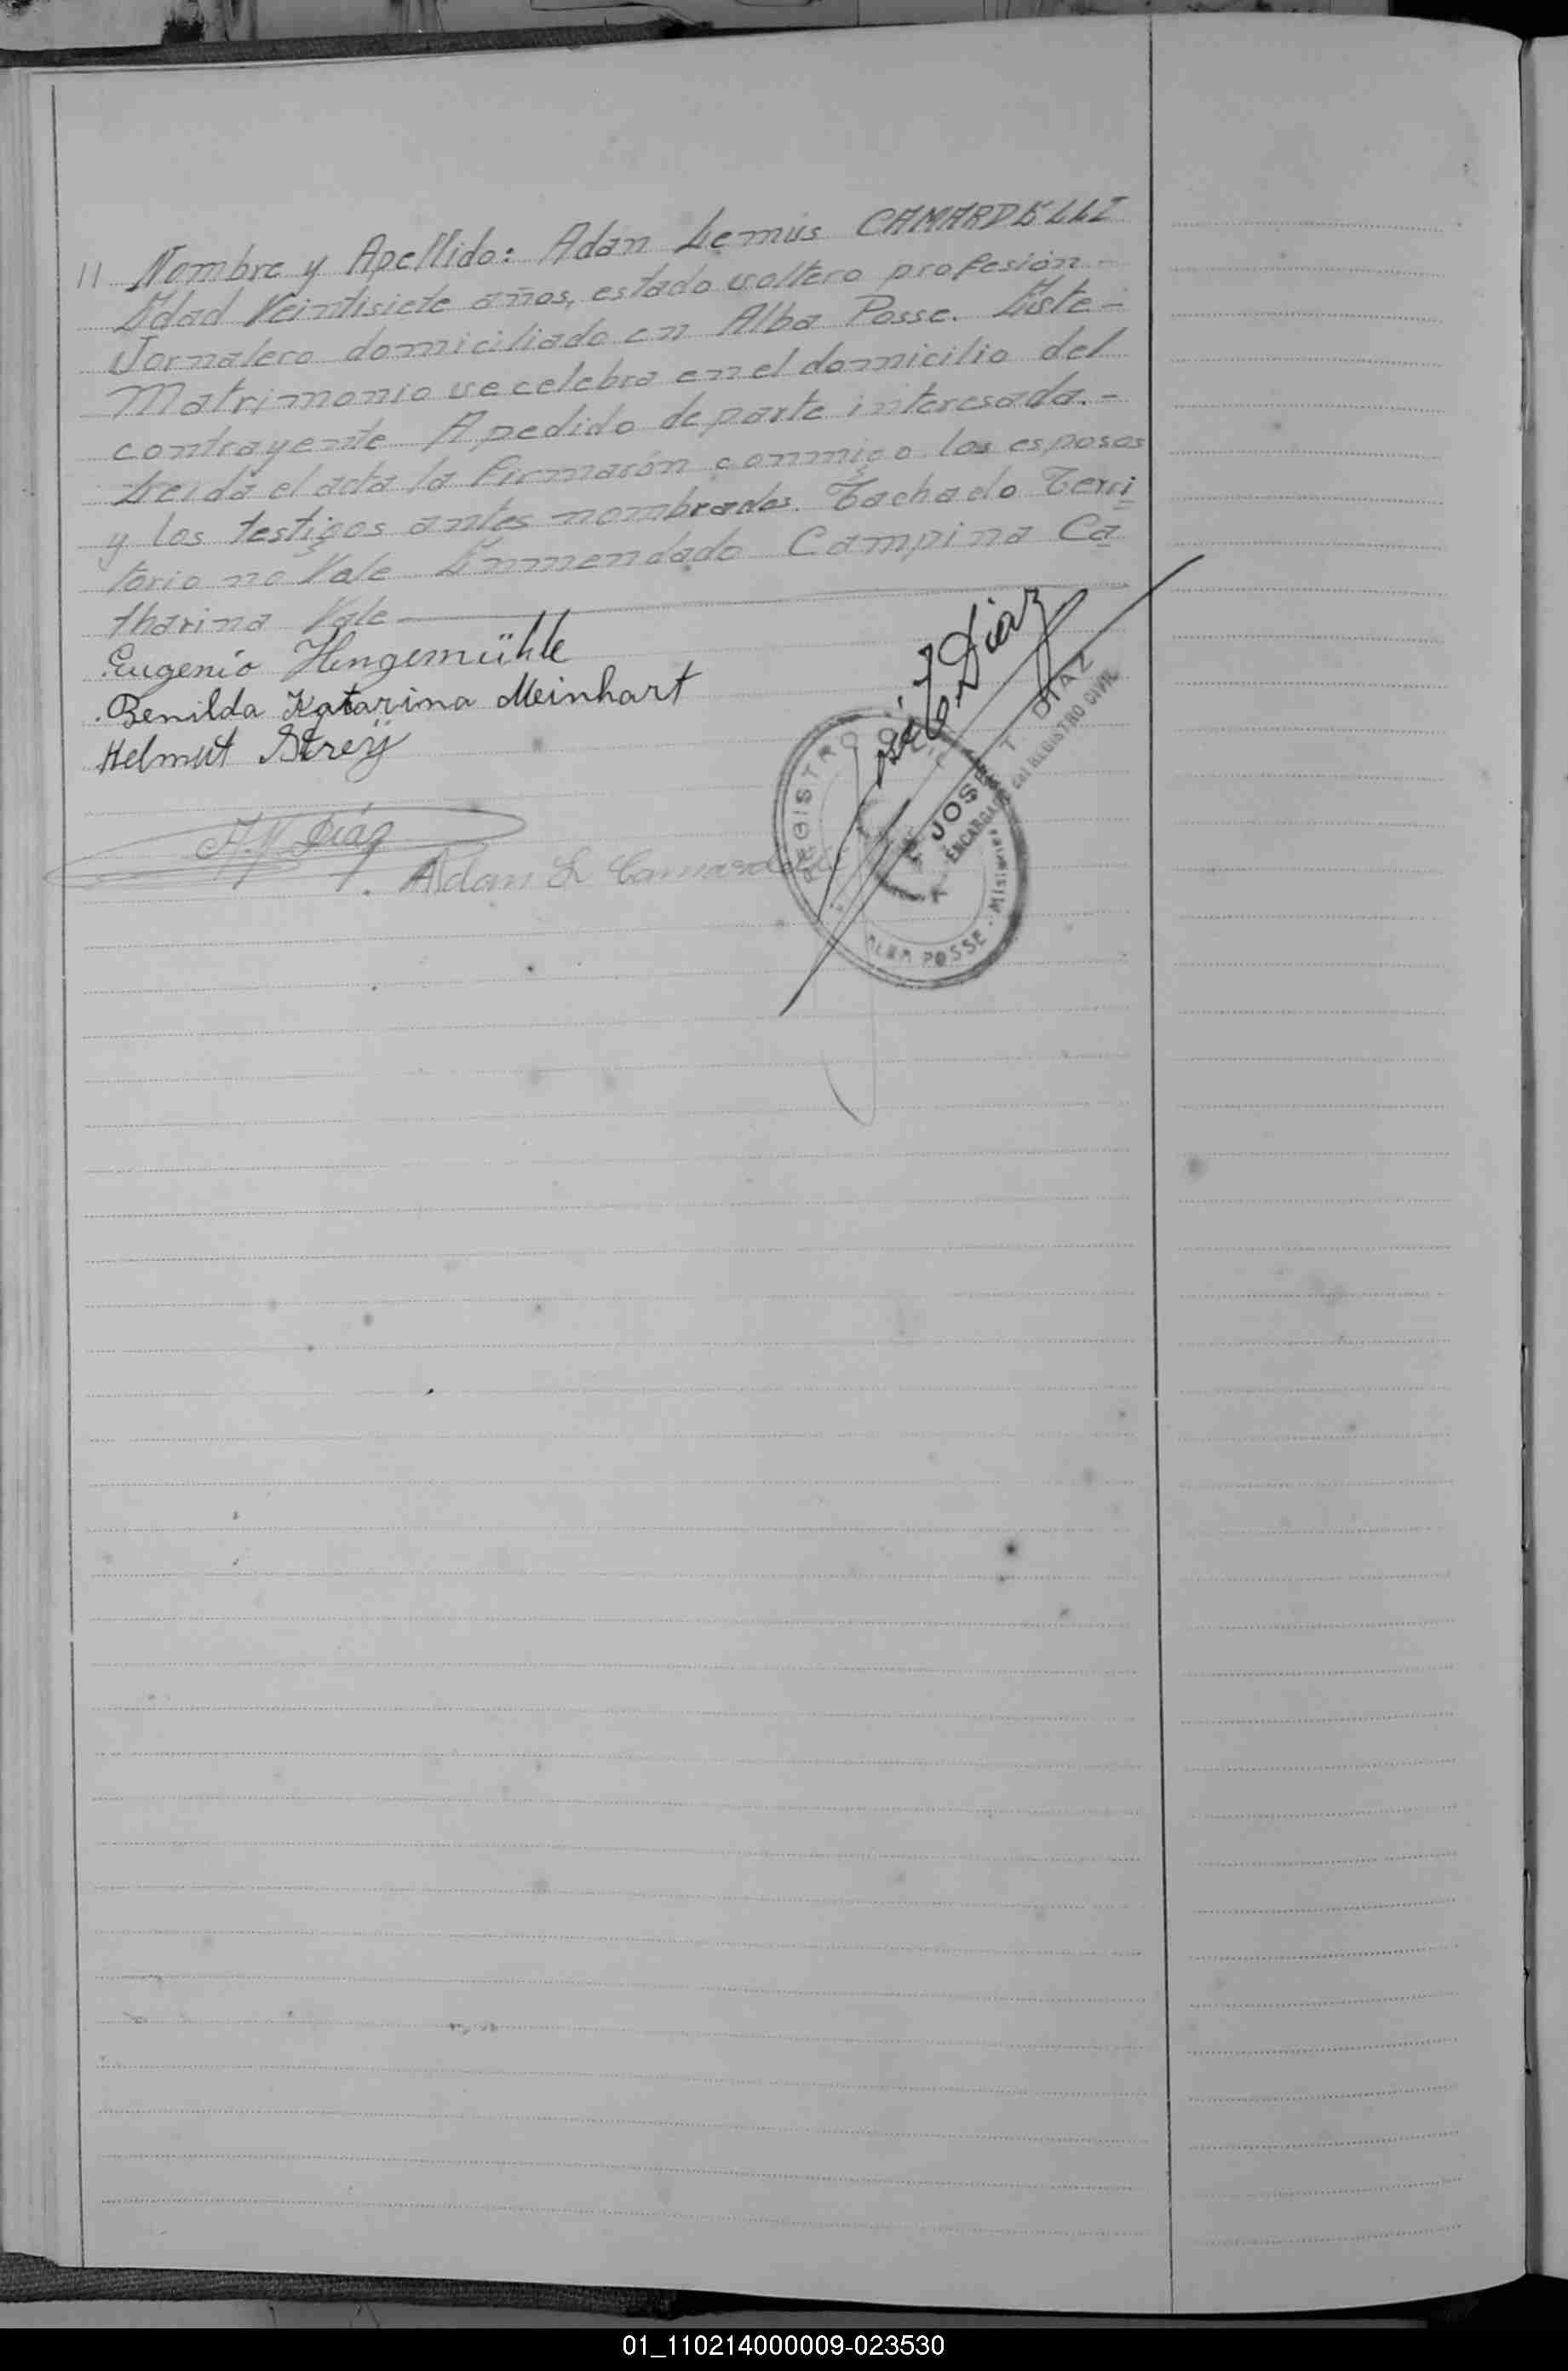 11 Nombre y Apellido: Adan Lemus CAMARDELLI
Edad Veintisiete años, estado soltero profesión -
Jornalero domiciliado en Alba Posse. Este -
Matrimonio se celebra en el domicilio del
contrayente A pedido de parte interesada. -
Leida el acta la firmarón conmigo los esposos
y los testigos antes nombrados. Tachado Terri
torio no Vale Enmendado Campina Ca
tharina Vale
Eugenio Hengemühle
Benilda Katarina Meinhart
Helmut Strey
A. M. Diáz
Adan L Camardelli
José T. Diaz
JOSE T. DIAZ
ENCARGADO del REGISTRO CIVIL
REGISTRO CIVIL
ALBA POSSE - Misiones
01_110214000009-023530